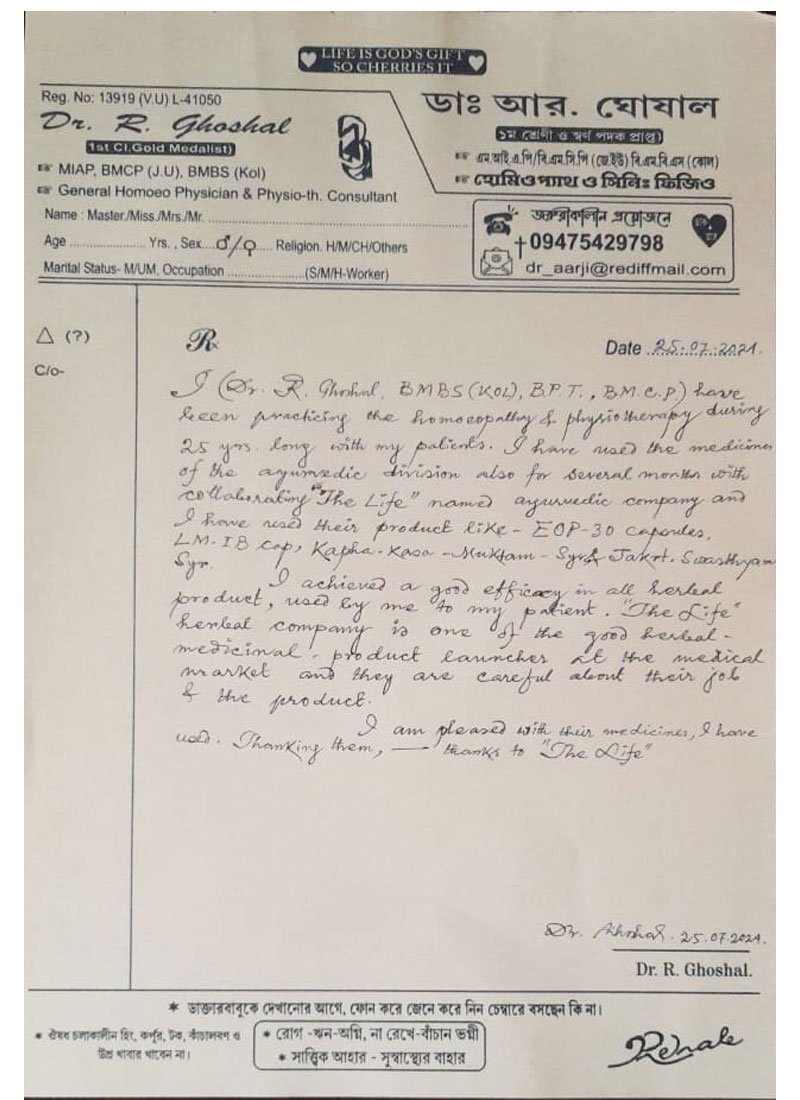 LIFE IS GOD'S GIFT
SO CHERRIES IT
Reg. No: 13919 (V.U) L-41050
Dr. R. Ghoshal
1st Cl. Gold Medalist)
MIAP, BMCP (J.U), BMBS (Kol)
General Homoeo Physician & Physio-th. Consultant
Name : Master./Miss./Mrs./Mr. ..........
Age .......... Yrs. , Sex....♂/♀.... Religion. H/M/CH/Others
Marital Status- M/UM, Occupation ..........(S/M/H-Worker)
ডাঃ আর. ঘোষাল
১ম শ্রেণী ও স্বর্ণ পদক প্রাপ্ত)
এম.আই.এ.পি/বি.এম.সি.পি (জে.ইউ) বি.এম.বি.এস (কোল)
হোমিওপ্যাথ ও সিনিঃ ফিজিও
জরুরাকালীন প্রয়োজনে
09475429798
dr_aarji@rediffmail.com
△ (?)
C/o-
Rx
Date 25.07.2021.
I (Dr. R. Ghoshal, BMBS (KOL), B.P.T., B.M.C.P) have
been practicing the homoeopathy & physiotherapy during
25 yrs. long with my patients. I have used the medicines
of the ayurvedic division also for several months with
collaborating "The Life" named ayurvedic company and
I have used their product like - EOP-30 capsules,
LM-IB cap, Kapha-Kasa-Muktam-Syr & Jakrt. Swasthyam
Syr.
I achieved a good efficacy in all herbal
product, used by me to my patient. "The Life"
herbal company is one of the good herbal-
medicinal product launcher at the medical
market and they are careful about their job
& the product.
I am pleased with their medicines, I have
used. Thanking them, — thanks to "The Life"
Dr. Ghoshal. 25.07.2021.
Dr. R. Ghoshal.
* ডাক্তারবাবুকে দেখানোর আগে, ফোন করে জেনে করে নিন চেম্বারে বসছেন কি না।
* ঔষধ চলাকালীন হিং, কর্পুর, টক, কাঁচালবণ ও
উগ্র খাবার খাবেন না।
* রোগ -ঋন-অগ্নি, না রেখে-বাঁচান ভগ্নী
* সাত্ত্বিক আহার - সুস্বাস্থ্যের বাহার